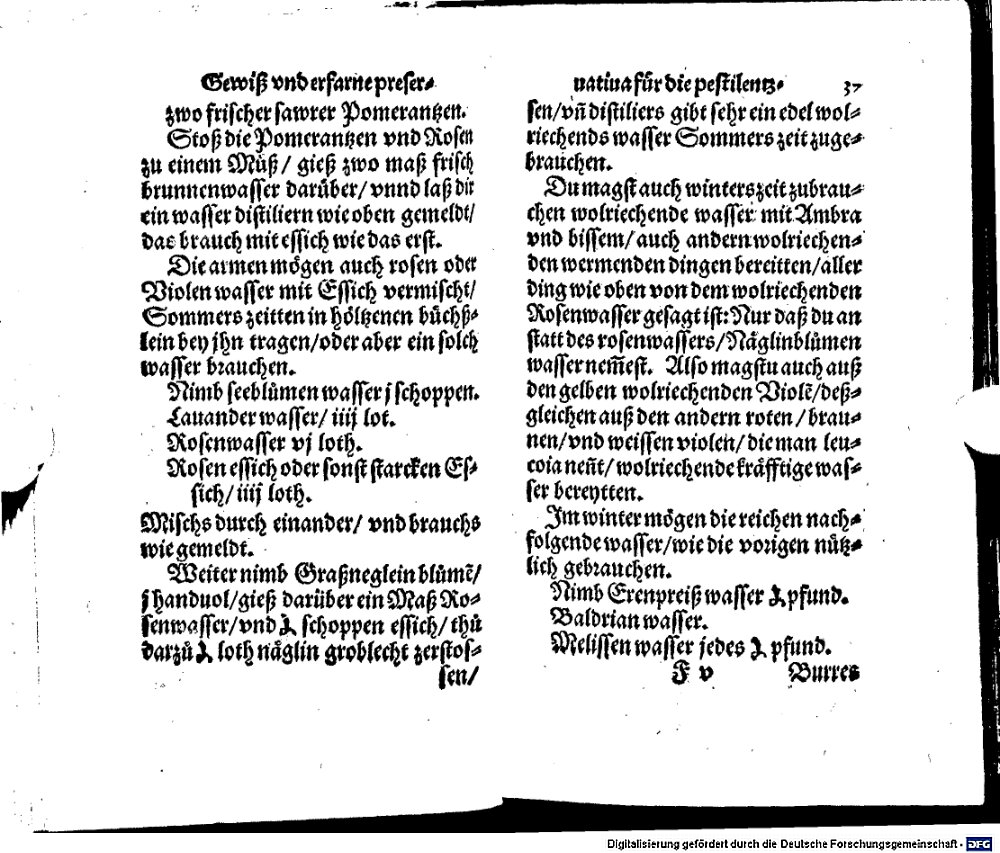 Gewiß vnd erfarne preser⸗
zwo frischer sawrer Pomerantzen.
Stoß die Pomerantzen vnd Rosen
zu einem Müß/ gieß zwo maß frisch
brunnenwasser darüber/ vnnd laß dir
ein wasser distiliern wie oben gemeldt/
das brauch mit essich wie das erst.
Die armen mögen auch rosen oder
Violen wasser mit Essich vermischt/
Sommers zeitten in höltzenen büchß⸗
lein bey jhn tragen/ oder aber ein solch
wasser brauchen.
Nimb seeblůmen wasser j schoppen.
Lauander wasser/ iiij lot.
Rosenwasser vj loth.
Rosen essich oder sonst starcken Es⸗
sich/ iiij loth.
Mischs durch einander/ vnd brauchs
wie gemeldt.
Weiter nimb Graßneglein blůmẽ/
j handuol/ gieß darüber ein Maß Ro⸗
senwasser/ vnd schoppen essich/ thů
darzů loth näglin groblecht zerstos⸗
sen/
uatiua für die pestilentz. 37
sen/ vñ distiliers gibt sehr ein edel wol⸗
riechends wasser Sommers zeit zuge⸗
brauchen.
Du magst auch winters zeit zubrau⸗
chen wolriechende wasser mit Ambra
vnd bissem/ auch andern wolriechen⸗
den wermenden dingen bereitten/ aller
ding wie oben von dem wolriechenden
Rosenwasser gesagt ist: Nur daß du an
statt des rosenwassers/ Näglinblůmen
wasser nem̃est. Also magstu auch auß
den gelben wolriechenden Violẽ/ deß⸗
gleichen auß den andern roten/ brau⸗
nen/ vnd weissen violen/ die man leu⸗
coia neñt/ wolriechende kräfftige was⸗
ser bereytten.
Im winter mögen die reichen nach⸗
folgende wasser/ wie die vorigen nütz⸗
lich gebrauchen.
Nimb Erenpreiß wasser pfund.
Baldrian wasser.
Melissen wasser jedes pfund.
F v Burres
Digitalisierung gefördert durch die Deutsche Forschungsgemeinschaft - DFG